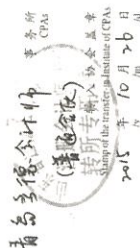 青岛 德会计师
事务所
CPAs
(普通合伙)
转所专
入协会盖章
Stamp of the transfer-in Institute of CPAs
2015年 10月 26日
/y /m /d